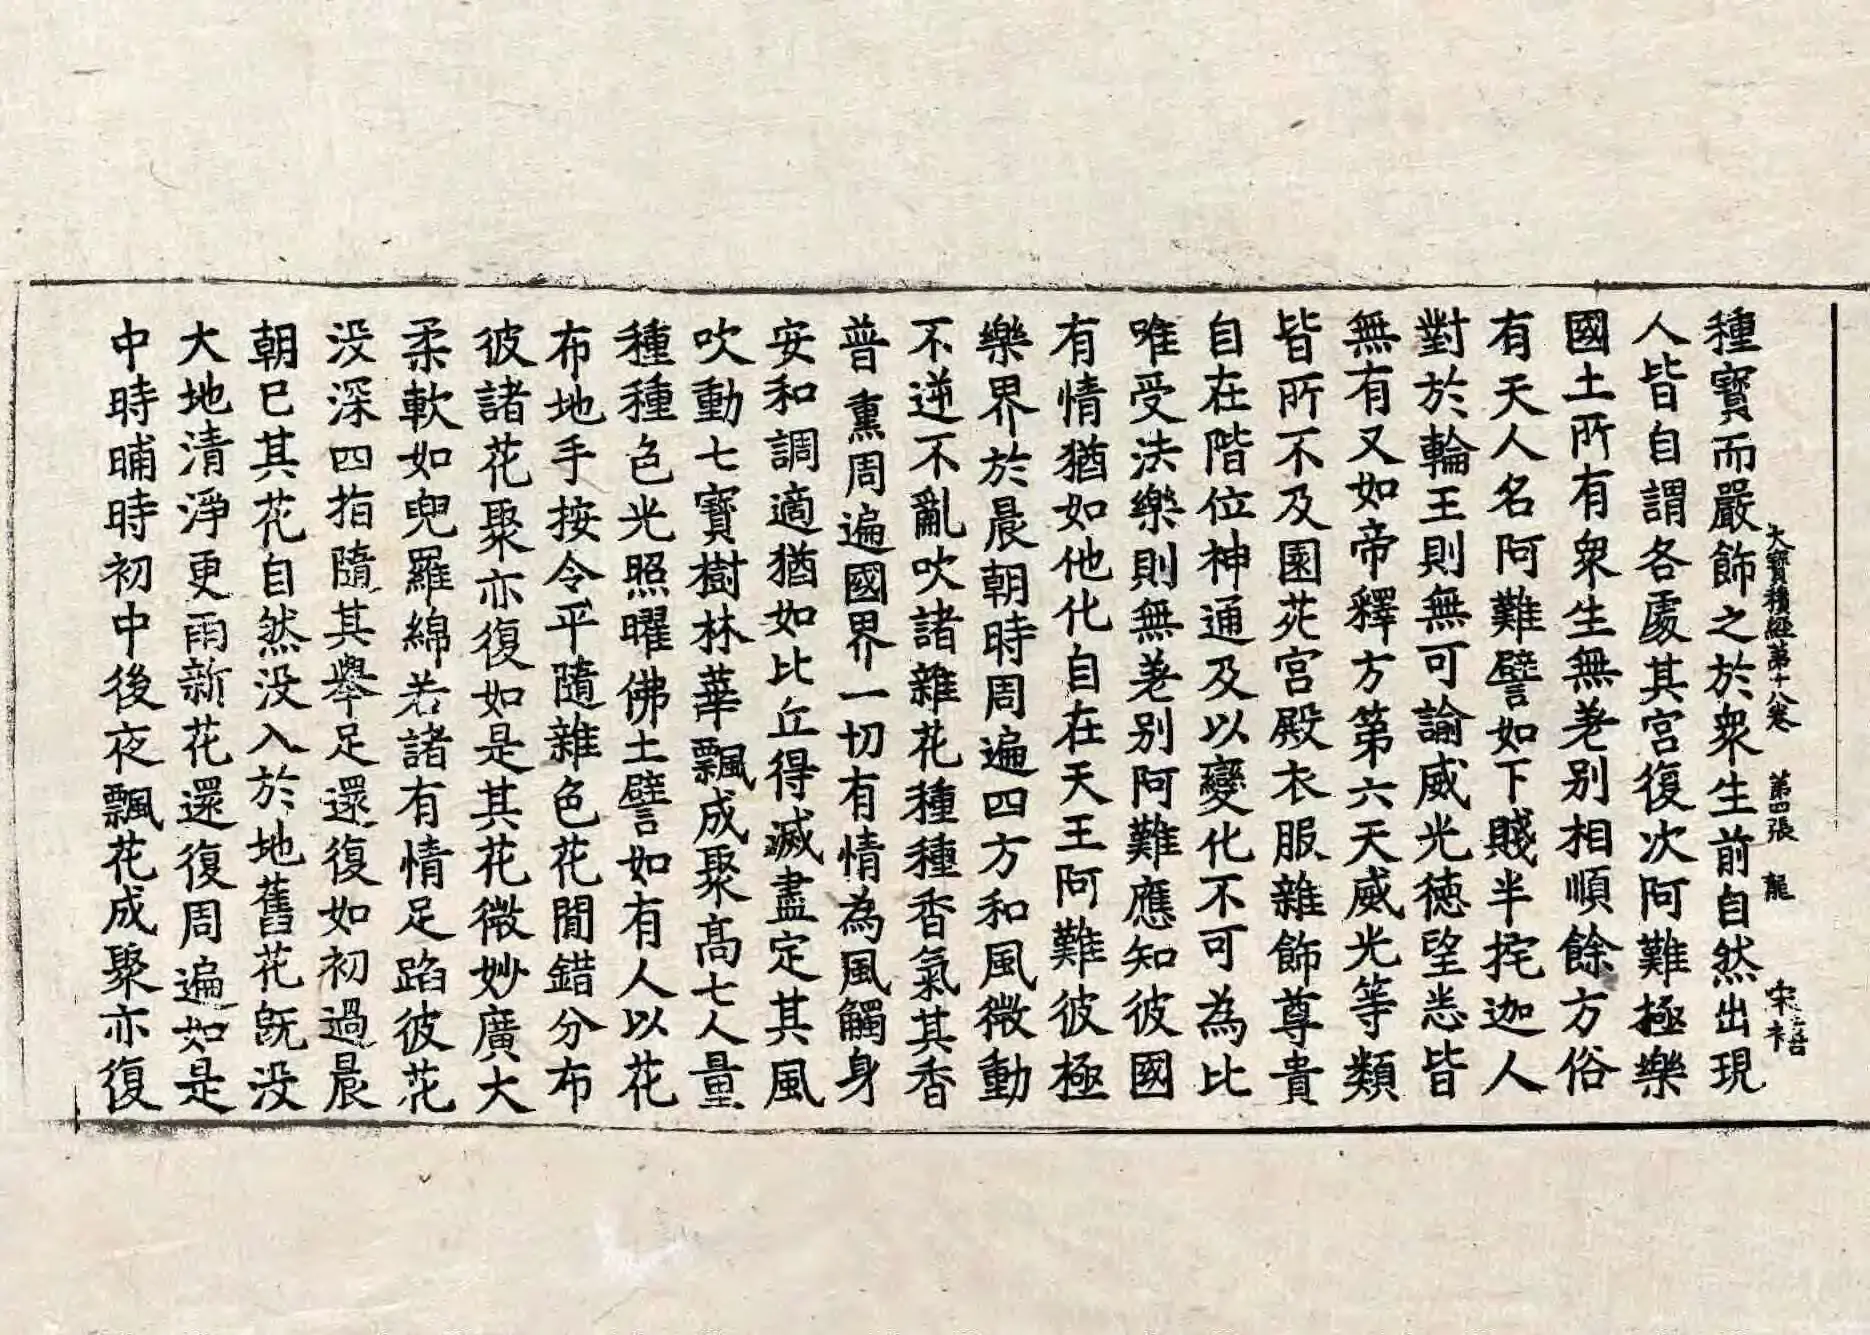 大寶積經第十八卷 第四張 龍
種寶而嚴飾之於衆生前自然出現
人皆自謂各處其宮復次阿難極樂
國土所有衆生無差別相順餘方俗
有天人名阿難譬如下賤半挓迦人
對於輪王則無可諭威光德望悉皆
無有又如帝釋方第六天威光等類
皆所不及園苑宮殿衣服雜飾尊貴
自在階位神通及以變化不可為比
唯受法樂則無差別阿難應知彼國
有情猶如他化自在天王阿難彼極
樂界於晨朝時周遍四方和風微動
不逆不亂吹諸雜花種種香氣其香
普熏周遍國界一切有情為風觸身
安和調適猶如比丘得滅盡定其風
吹動七寶樹林華飄成聚高七人量
種種色光照曜佛土譬如有人以花
布地手按令平隨雜色花間錯分布
彼諸花聚亦復如是其花微妙廣大
柔軟如兜羅綿若諸有情足蹈彼花
没深四指隨其舉足還復如初過晨
朝已其花自然没入於地舊花既没
大地清淨更雨新花還復周遍如是
中時晡時初中後夜飄花成聚亦復